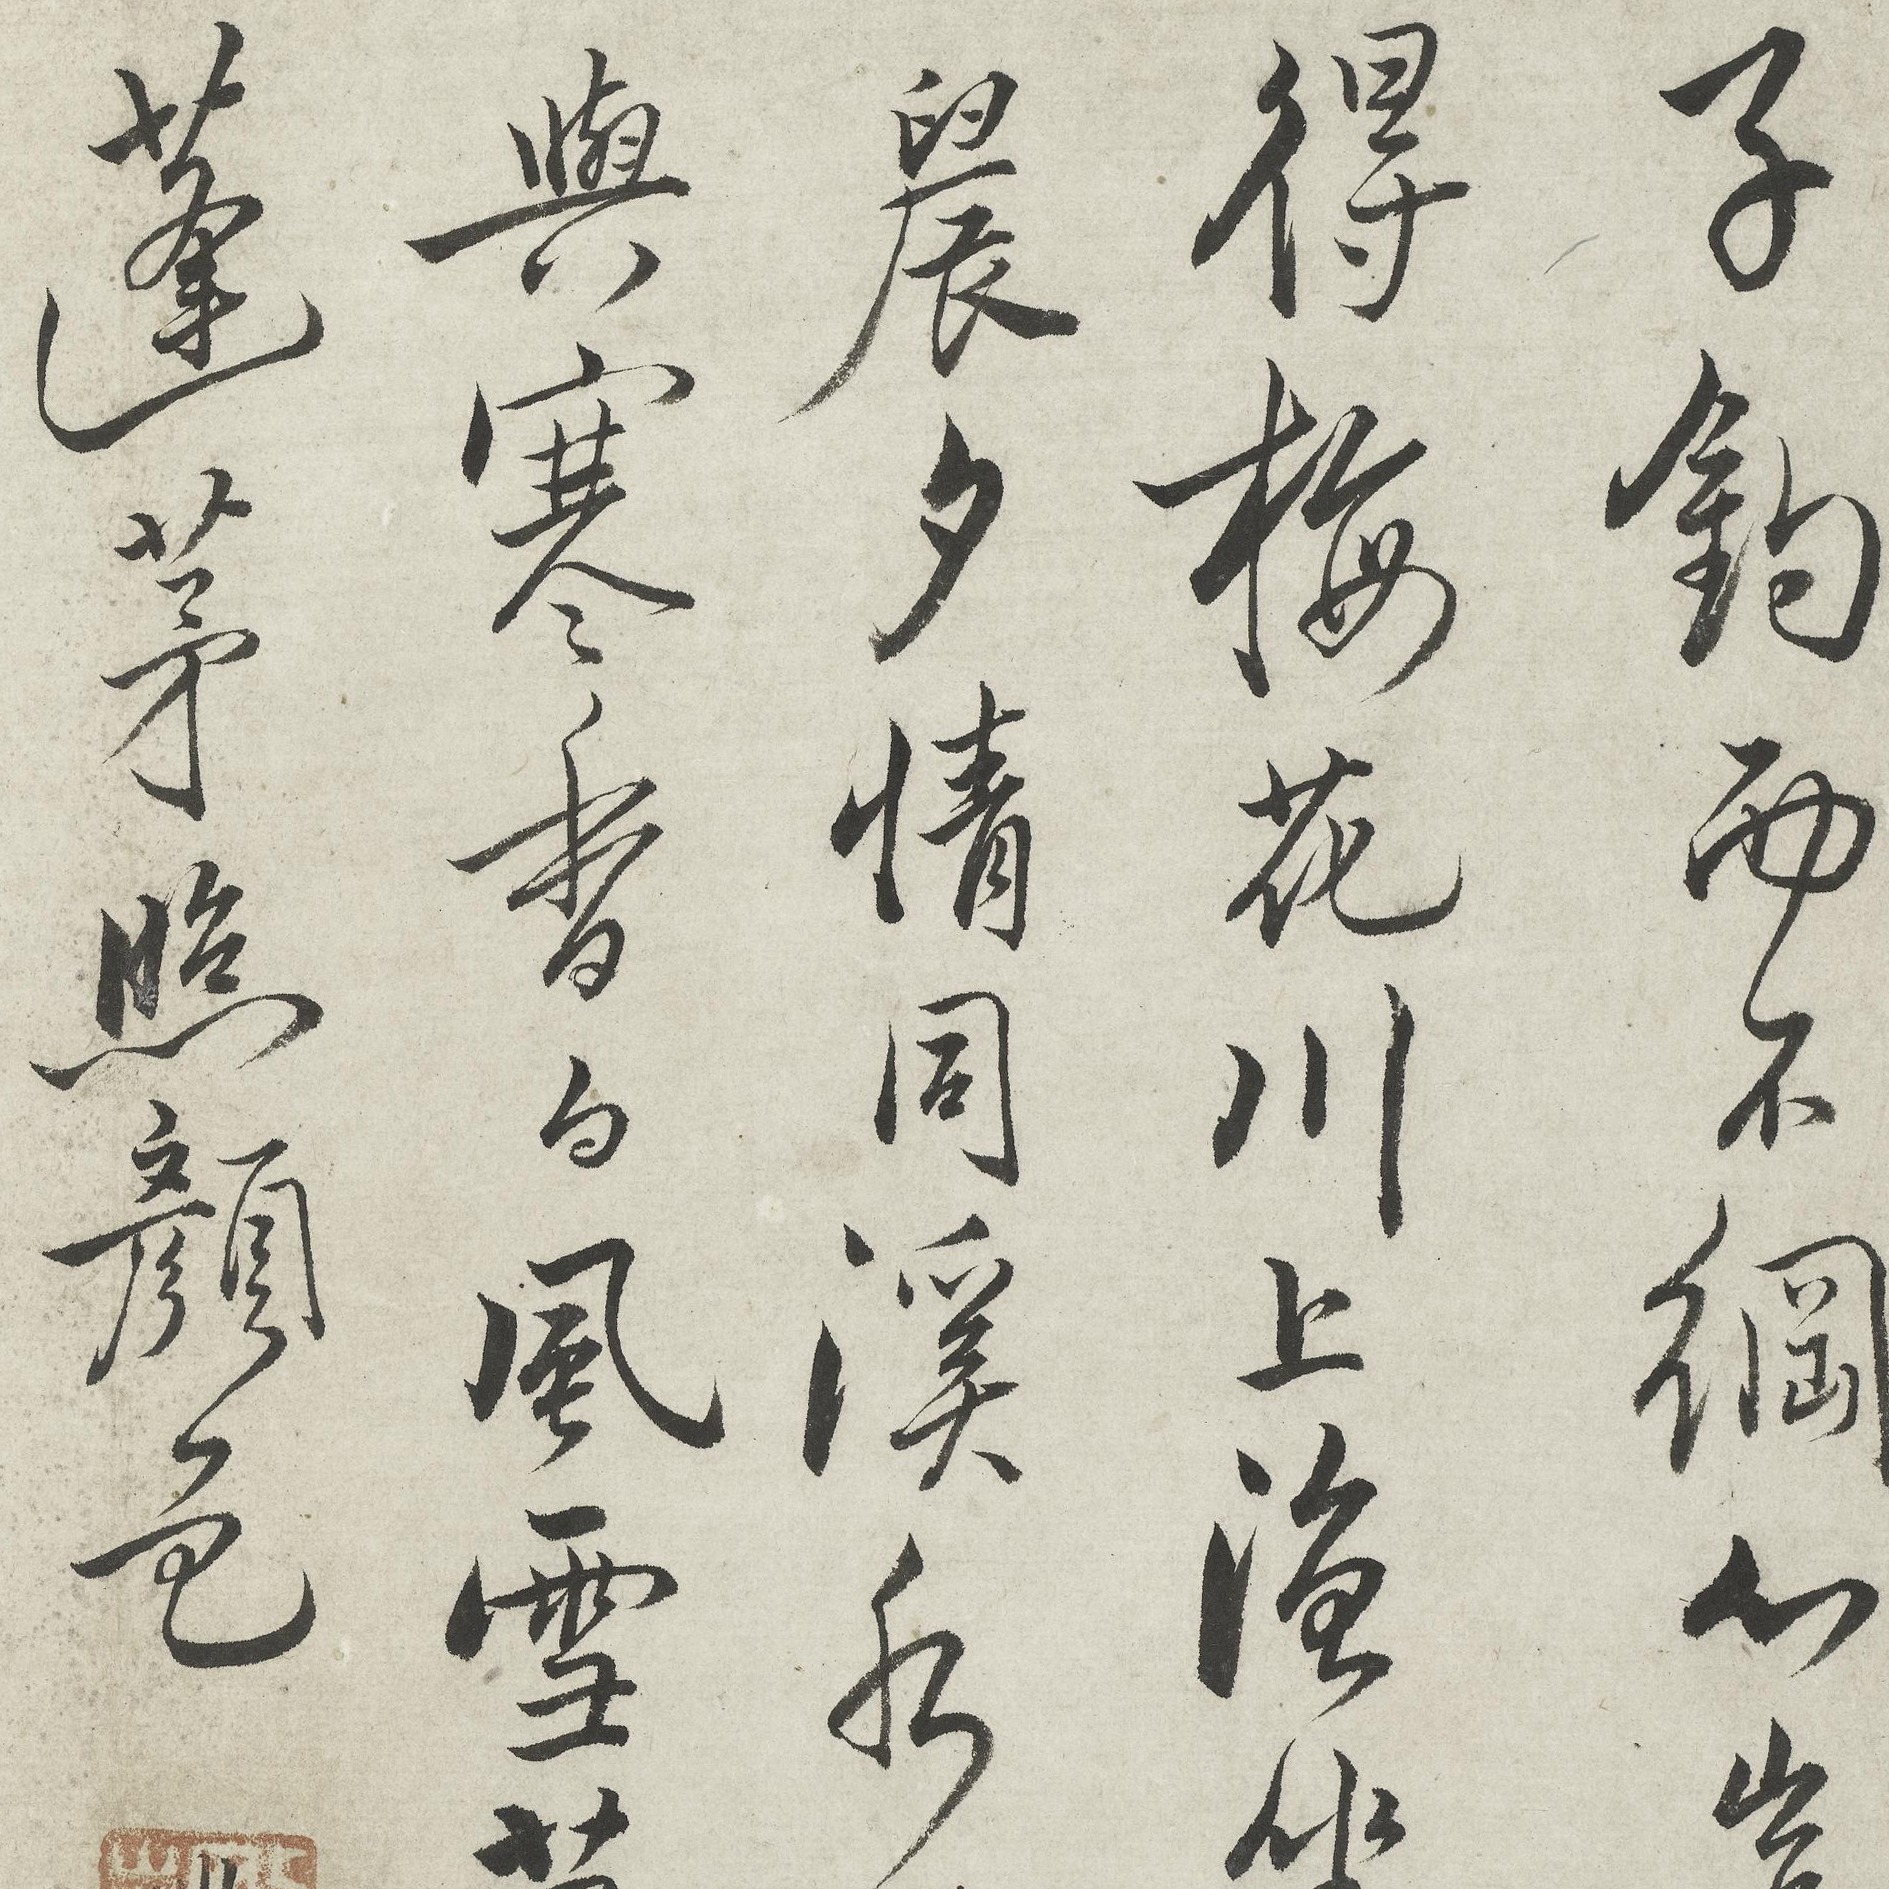 子鈎而不綱心豈
得梅花川上漁坐
晨夕情同溪水
與寒香白風雪
蓬茅照顏色